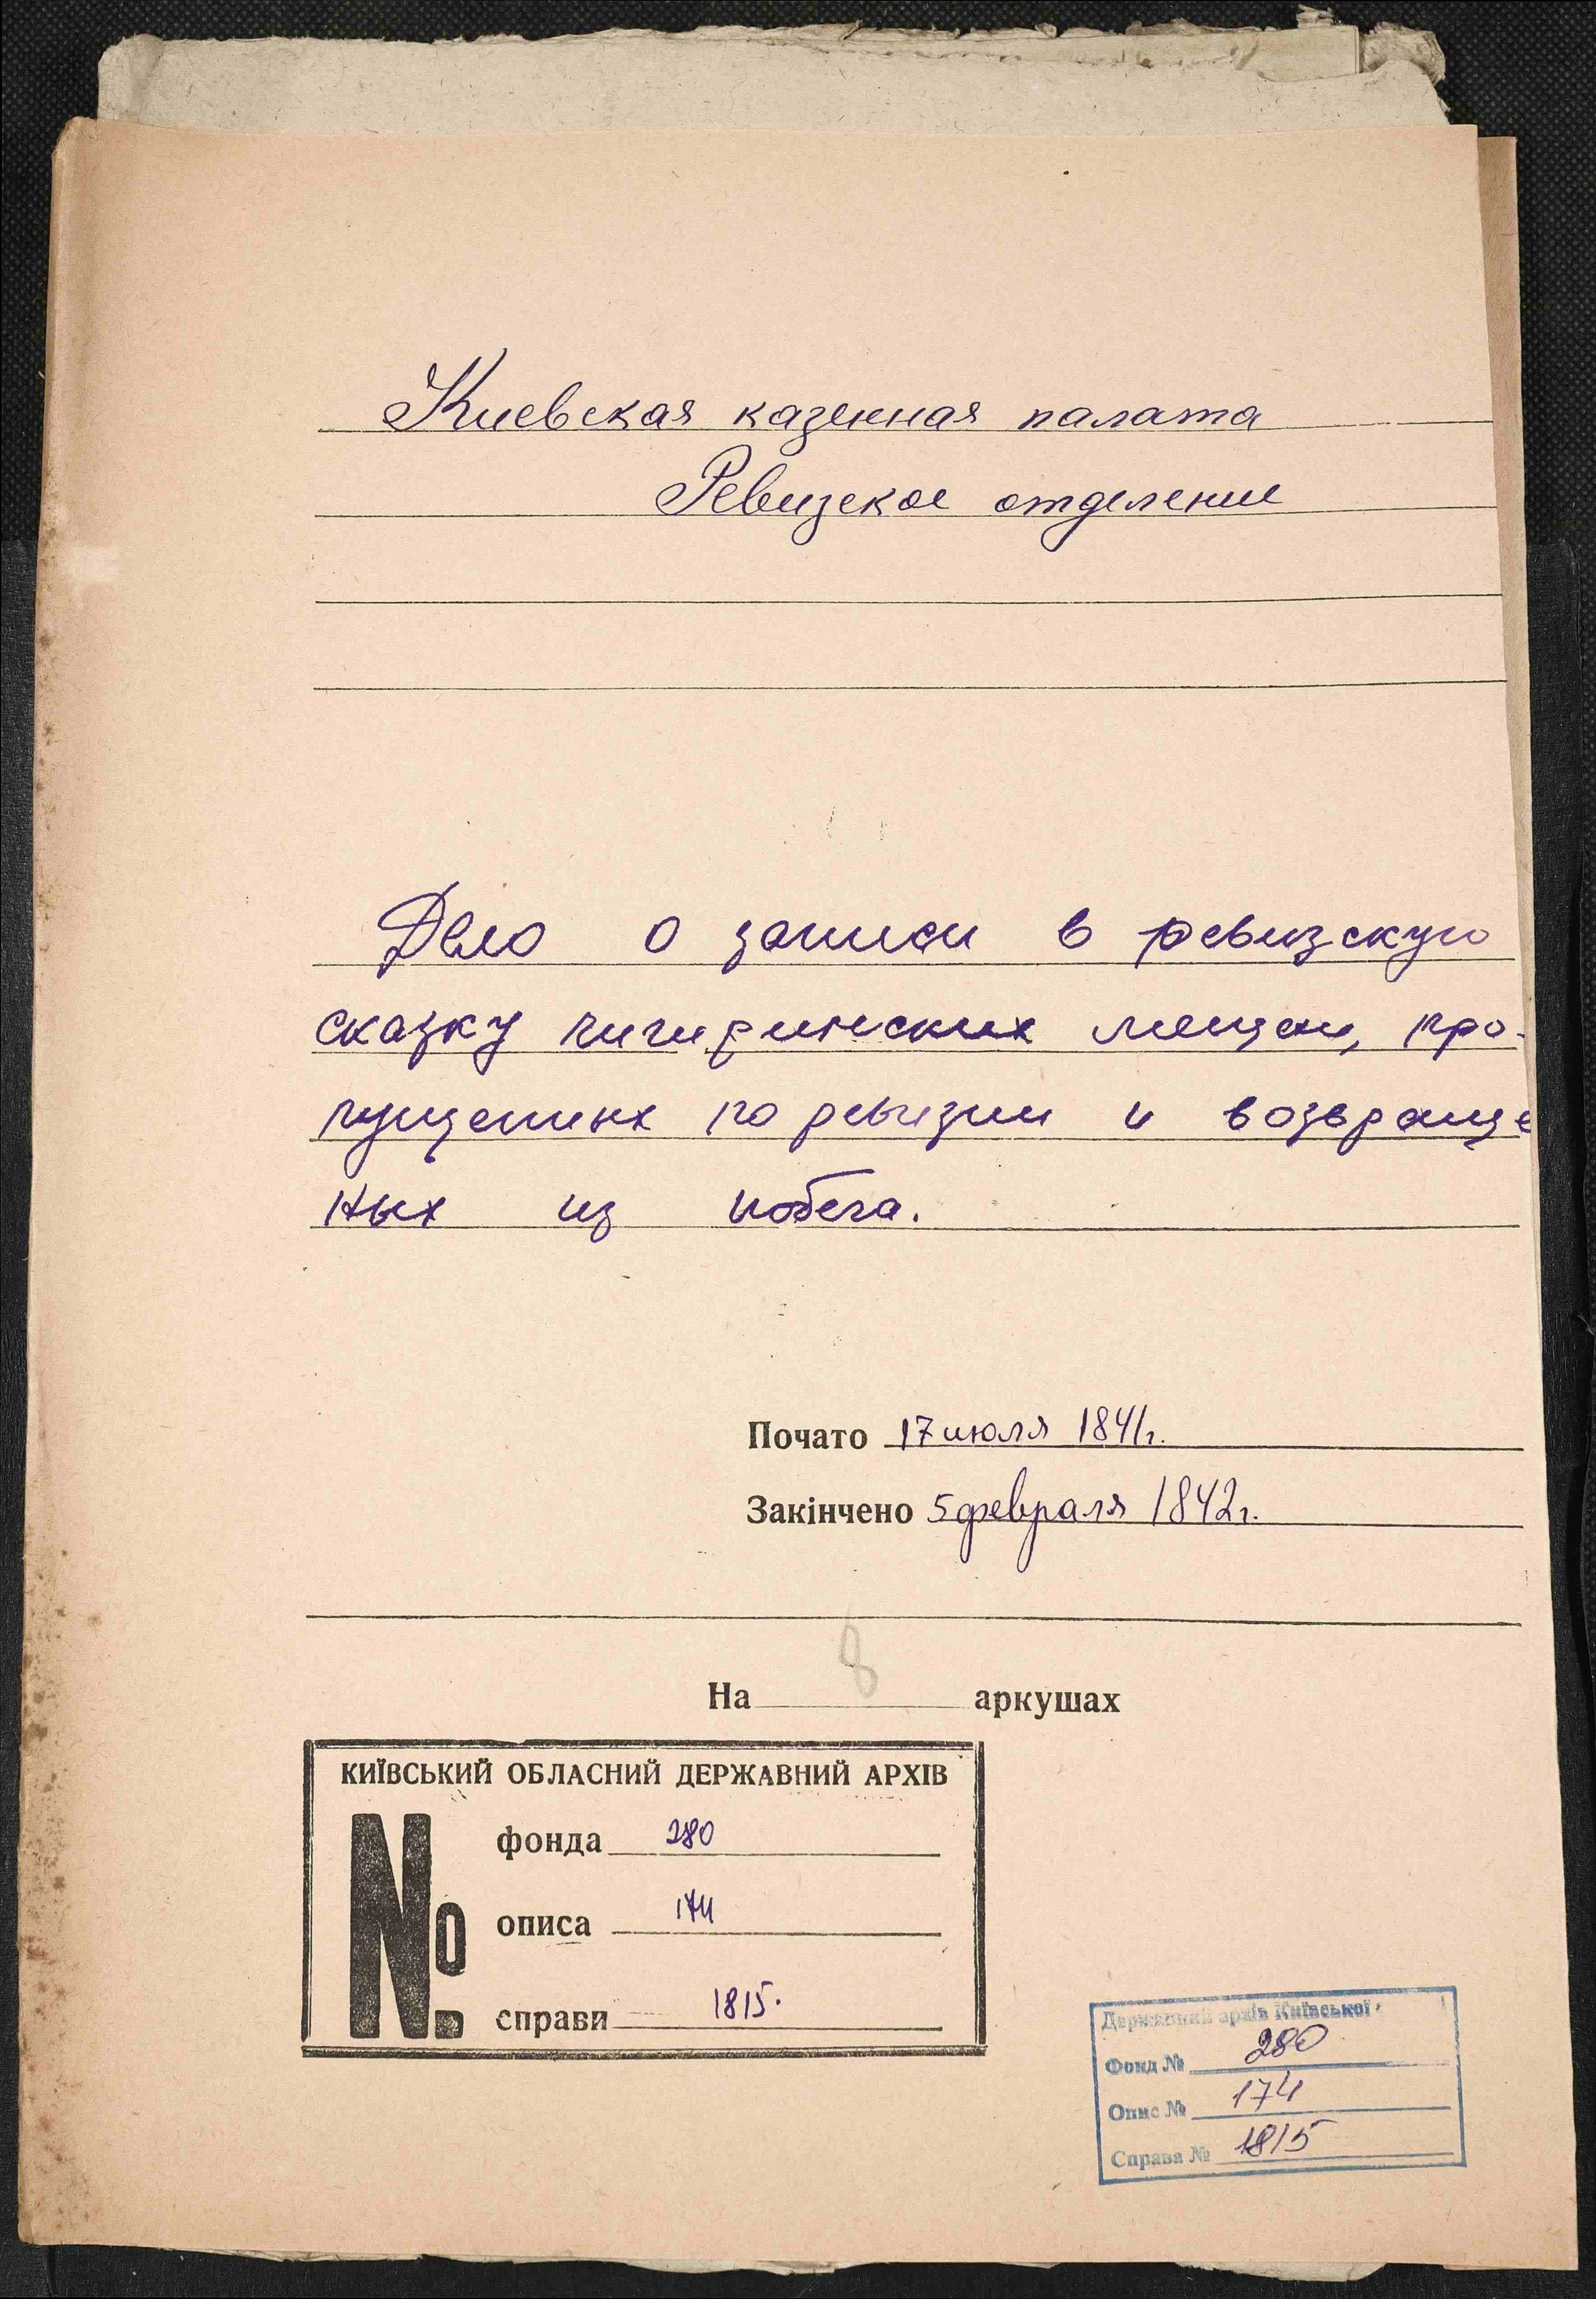 Киевская казенная палата
Ревизское отделение
Дело о записи в ревизскую
сказку чигиринских мещан, про-
пущенных по ревизии и возвраще
ных из побега.
Почато 17 июля 1841г.
Закінчено 5 февраля 1842г.
На 8 аркушах
КИЇВСЬКИЙ ОБЛАСНИЙ ДЕРЖАВНИЙ АРХІВ
№
фонда 280
описа 174
справи 1815.
Державний архів Київської
Фонд № 280
Опис № 174
Справа № 1815